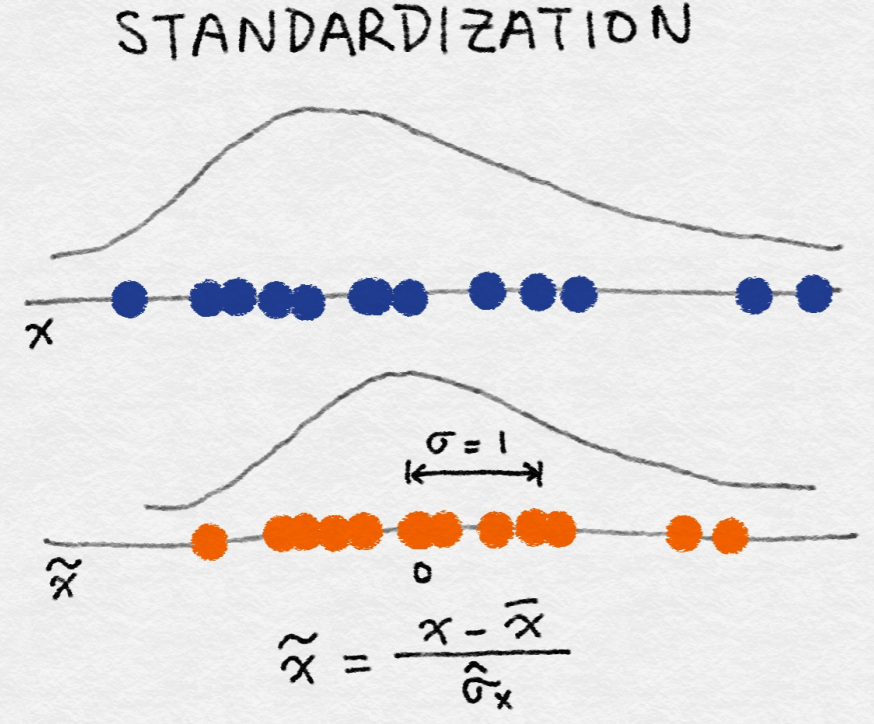 STANDARDIZATION
x
σ = 1
x̃
0
x̃ = (x - x̄) / σ̂ₓ